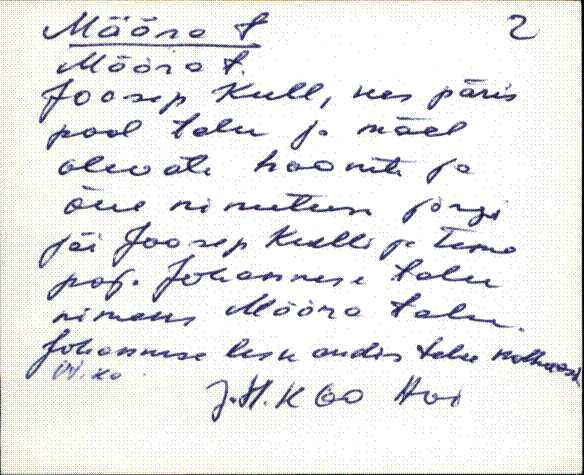 Määra t 2
Määra t.
Joosep Kull, kes päris
pool talu ja mäel
olevate hoonete ja
õue nimetuse järgi
jäi Joosep Kulli ja tema
poj. Johannese talu
nimeks Määra talu.
Johannese lesk andis talu kolhoosi
J. H. Hoi